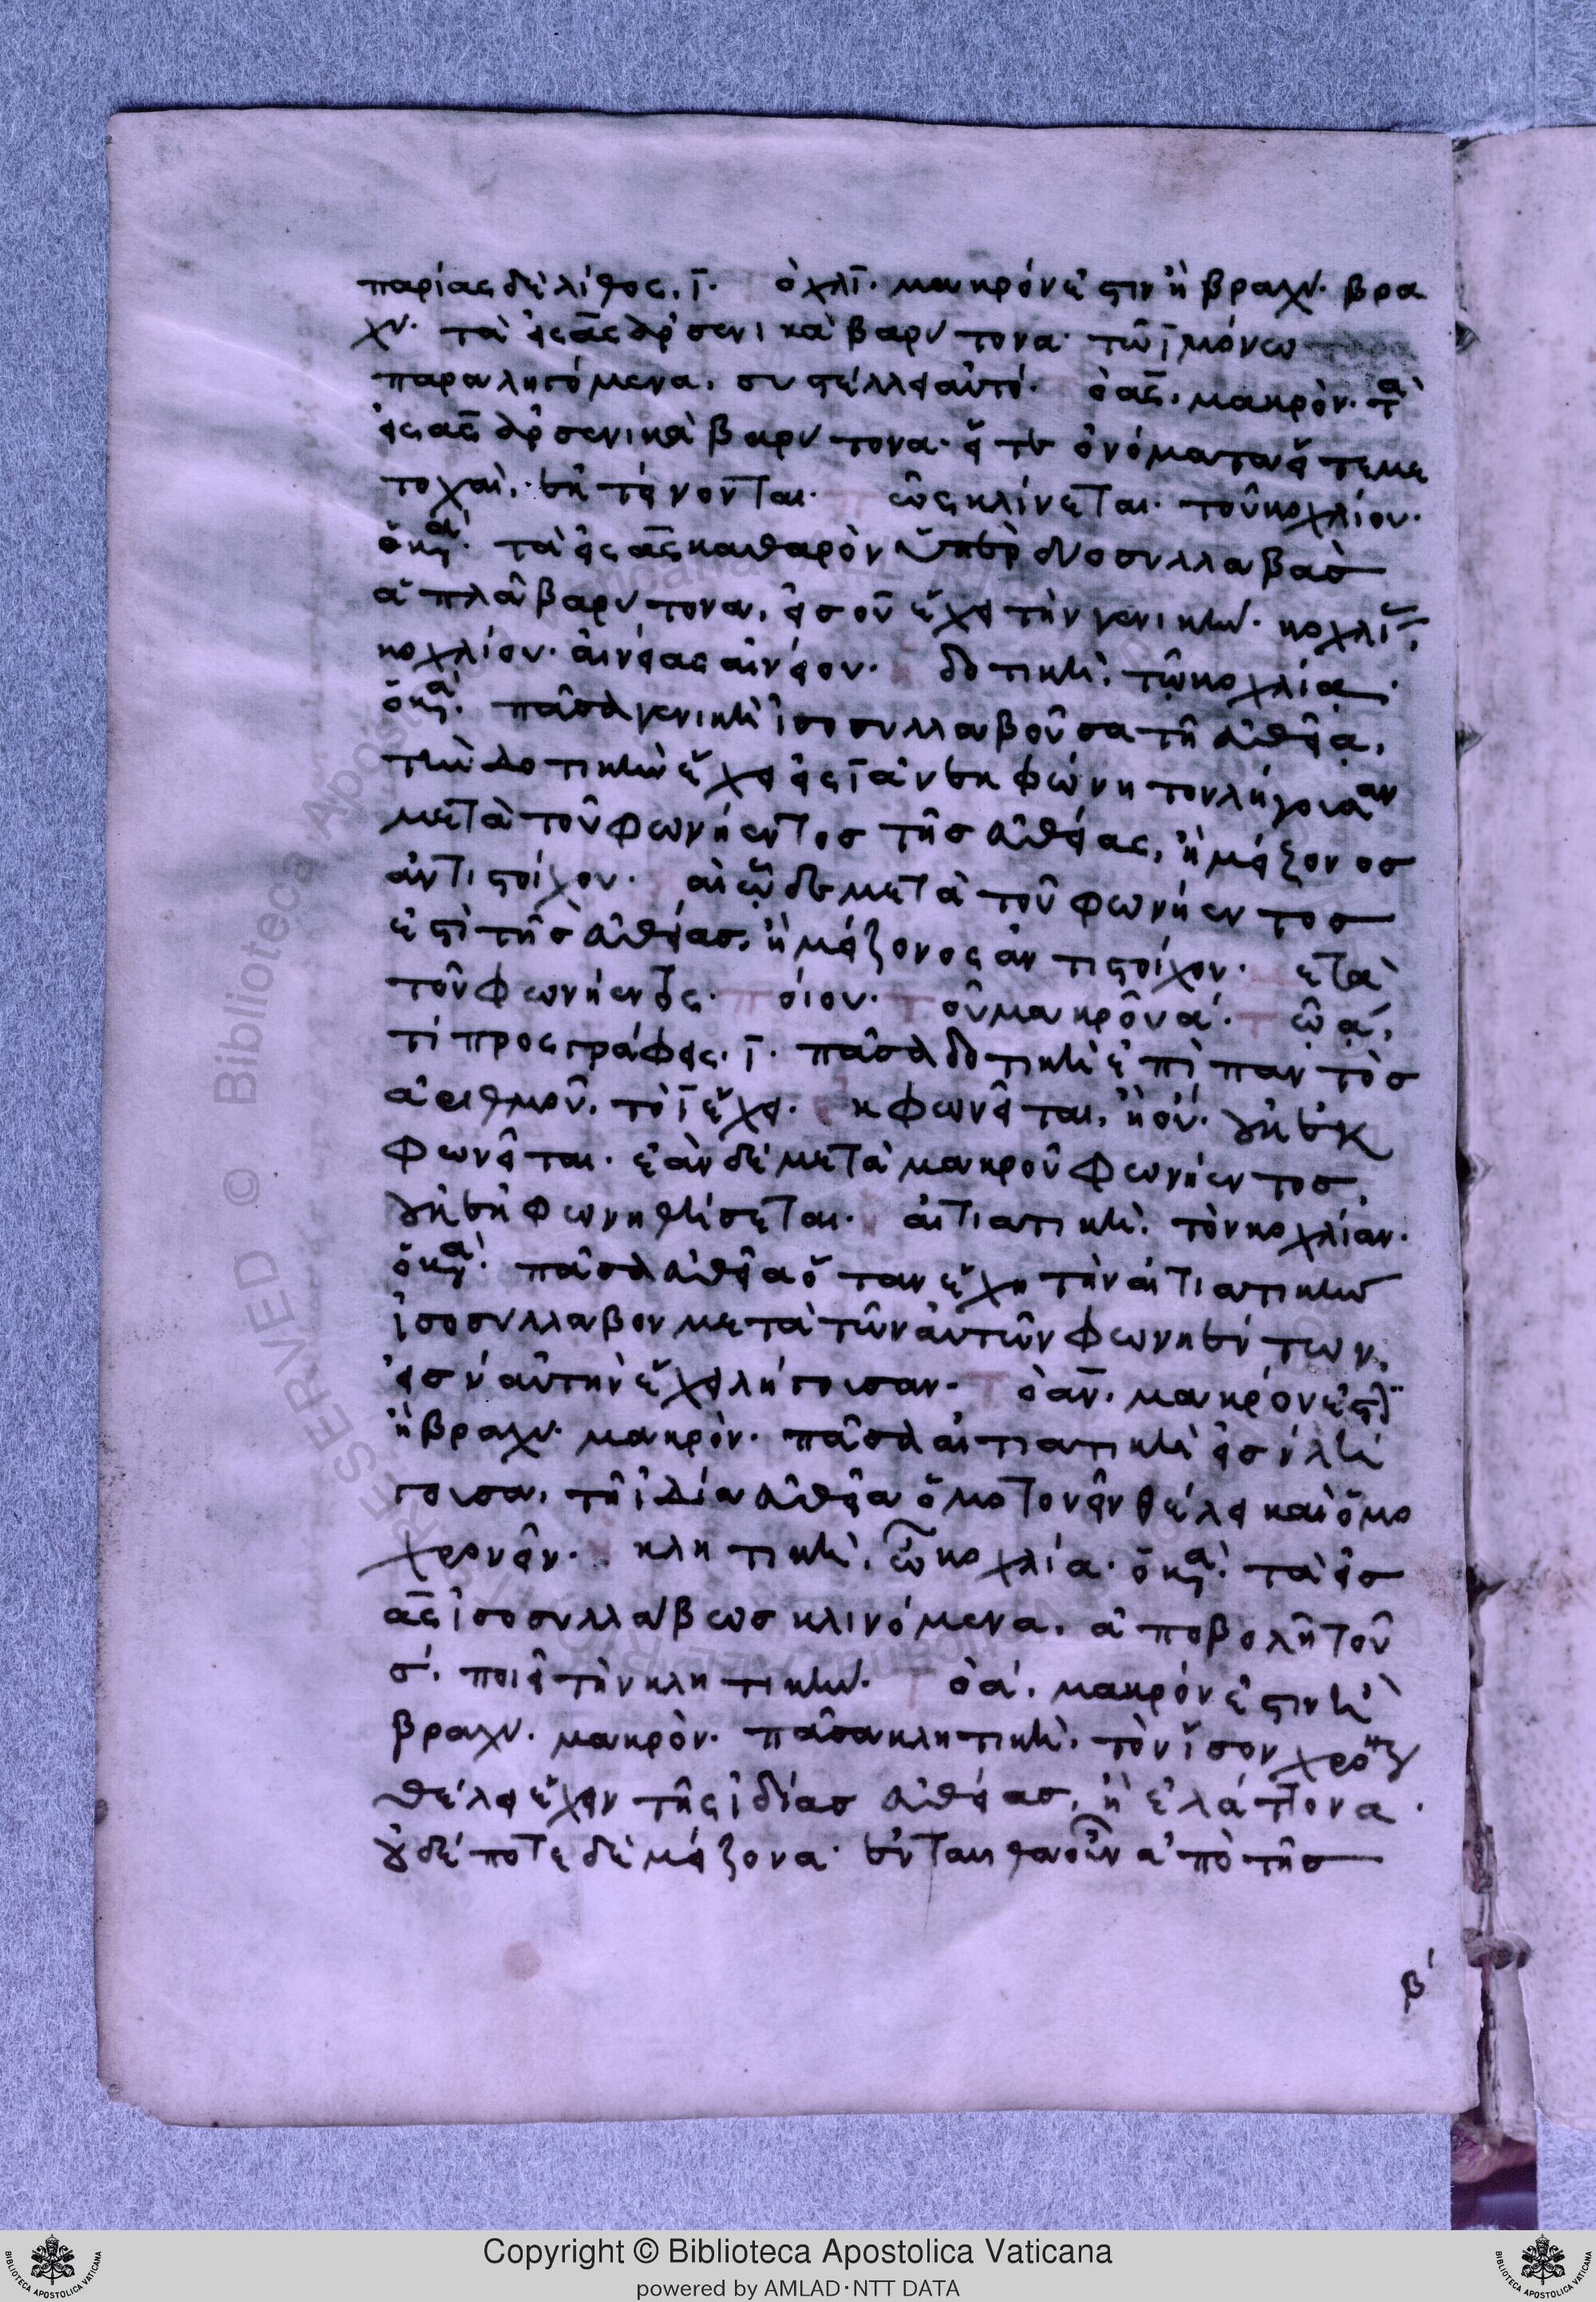 παρίας δὲ λίθος, ϊ. ὀχλϊ. μακρόν ἐστιν ἢ βραχύ. βρα
χύ. τὰ εἰς ᾱς ἀρσενικὰ βαρύτονα τῷ ϊ μόνω
παραληγόμενα, συστέλλει αὐτό. ὁ ᾱς, μακρόν. τὰ
εἰς ᾱς ἀρσενικὰ βαρύτονα εἴτε ὀνόματα εἴτε με
τοχαὶ, ἐκτείνονται. πῶς κλίνεται. τοῦ κοχλίου.
ὁ κα. τὰ εἰς ᾱς καθαρὸν ὑπὲρ δύο συλλαβὰς
ἁπλᾶ βαρύτονα, εἰς οῦ ἔχει τὴν γενικήν. κοχλί
κοχλίου. αἰνείας αἰνείου. δοτική. τῷ κοχλίᾳ.
ὁ κα. πᾶσα γενικὴ ἰσοσυλλαβοῦσα τῇ εὐθείᾳ,
τὴν δοτικὴν ἔχει εἰς ϊ ἀνεκφώνητον λήγουσαν
μετὰ τοῦ φωνήεντος τῆς εὐθείας, ἢ μείζονος
ἀντιστοίχου. μετὰ τοῦ φωνήεντος
ἐστὶ τῆς εὐθείας, ἢ μείζονος ἀντιστοίχου. ετὰ
τοῦ φωνήεντος. οιου. οῦ μακροῦ ᾱ. ῶ ᾳ,
τί προσγράφεις. ϊ. πᾶσα δοτικὴ ἐπὶ παντὸς
ἀριθμοῦ, τὸ ϊ ἔχει. κφωνεῖται, ἢ οὔ. ἐκ
φωνεῖται. ἐὰν δὲ μετὰ μακροῦ φωνήεντος,
ἐκφωνηθήσεται. αἰτιατική. τὸν κοχλίαν.
ὁ κα. πᾶσα εὐθεῖα ὅταν ἔχῃ τὴν αἰτιατικὴν
ἰσοσύλλαβον μετὰ τῶν αὐτῶν φωνηέντων,
εἰς ν αὐτὴν ἔχει λήγουσαν. ὁ ᾱν. μακρόν ἐστιν
ἢ βραχύ. μακρόν. πᾶσα αἰτιατικὴ εἰς ν λή
γουσα, τῇ ἰδίᾳ εὐθείᾳ ὁμοτονεῖν θέλει καὶ ὁμο
χρονεῖν. κλητική. ὦ κοχλία. ὁ κα. τὰ εἰς
ᾱς ἰσοσυλλάβως κλινόμενα, ἀποβολῇ τοῦ
σ, ποιεῖ τὴν κλητικήν. ὁ ᾱ, μακρόν ἐστιν ἢ
βραχύ. μακρόν. πᾶσα κλητικὴ, τὸν ἴσον χρόνον
θέλει ἔχειν τῆς ἰδίας εὐθείας, ἢ ἐλάττονα.
οὐδέποτε δὲ μείζονα. ἐνταῦθα οὖν ἀπὸ τῆς
β´
Copyright © Biblioteca Apostolica Vaticana
powered by AMLAD·NTT DATA